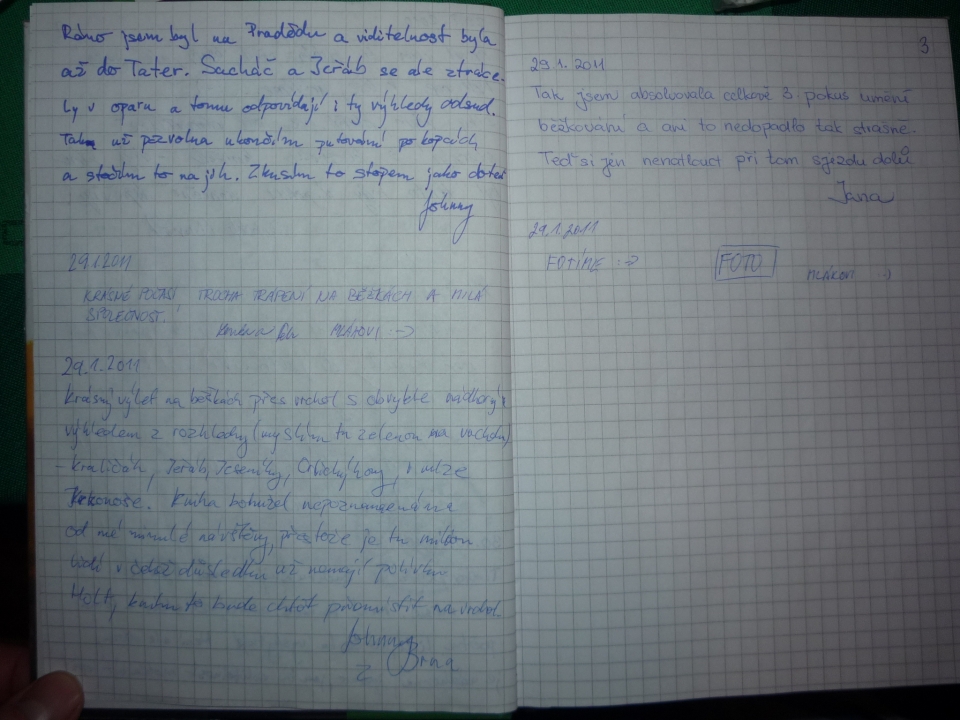 Ráno jsem byl na Pradědu a viditelnost byla
až do Tater. Sucháč a Jeřáb se ale ztráce-
ly v oparu a tomu odpovídají i ty výhledy odsud.
už pozvolna ukončím putování po kopcích
a stočím to na jih. Zkusím to stopem jako doteď
Johnny
29.1.2011
KRÁSNÉ POČASÍ TROCHA TRÁPENÍ NA BĚŽKÁCH A MILÁ
SPOLEČNOST.
:->
29.1.2011
Krásný výlet na běžkách přes vrchol s obvykle nádherným
výhledem z rozhledny (myslím tu zelenou na vrcholu)
- Kraličák, Jeřáb, Jeseníky, Orlické hory, i
Krkonoše. Kniha bohužel nepoznamenána
od mé minulé návštěvy, přestože je tu milion
lidí v čehož důsledku už nemají polívku
Holt, knihu to bude chtít přemístit na vrchol.
Johnny
z Brna
3
29.1.2011
Tak jsem absolvovala celkově 3 pokus umění
běžkování a ani to nedopadlo tak strašně.
Teď si jen nenatlouct při tom sjezdu dolů
Jana
29.1.2011
FOTÍME :->
FOTO
:)